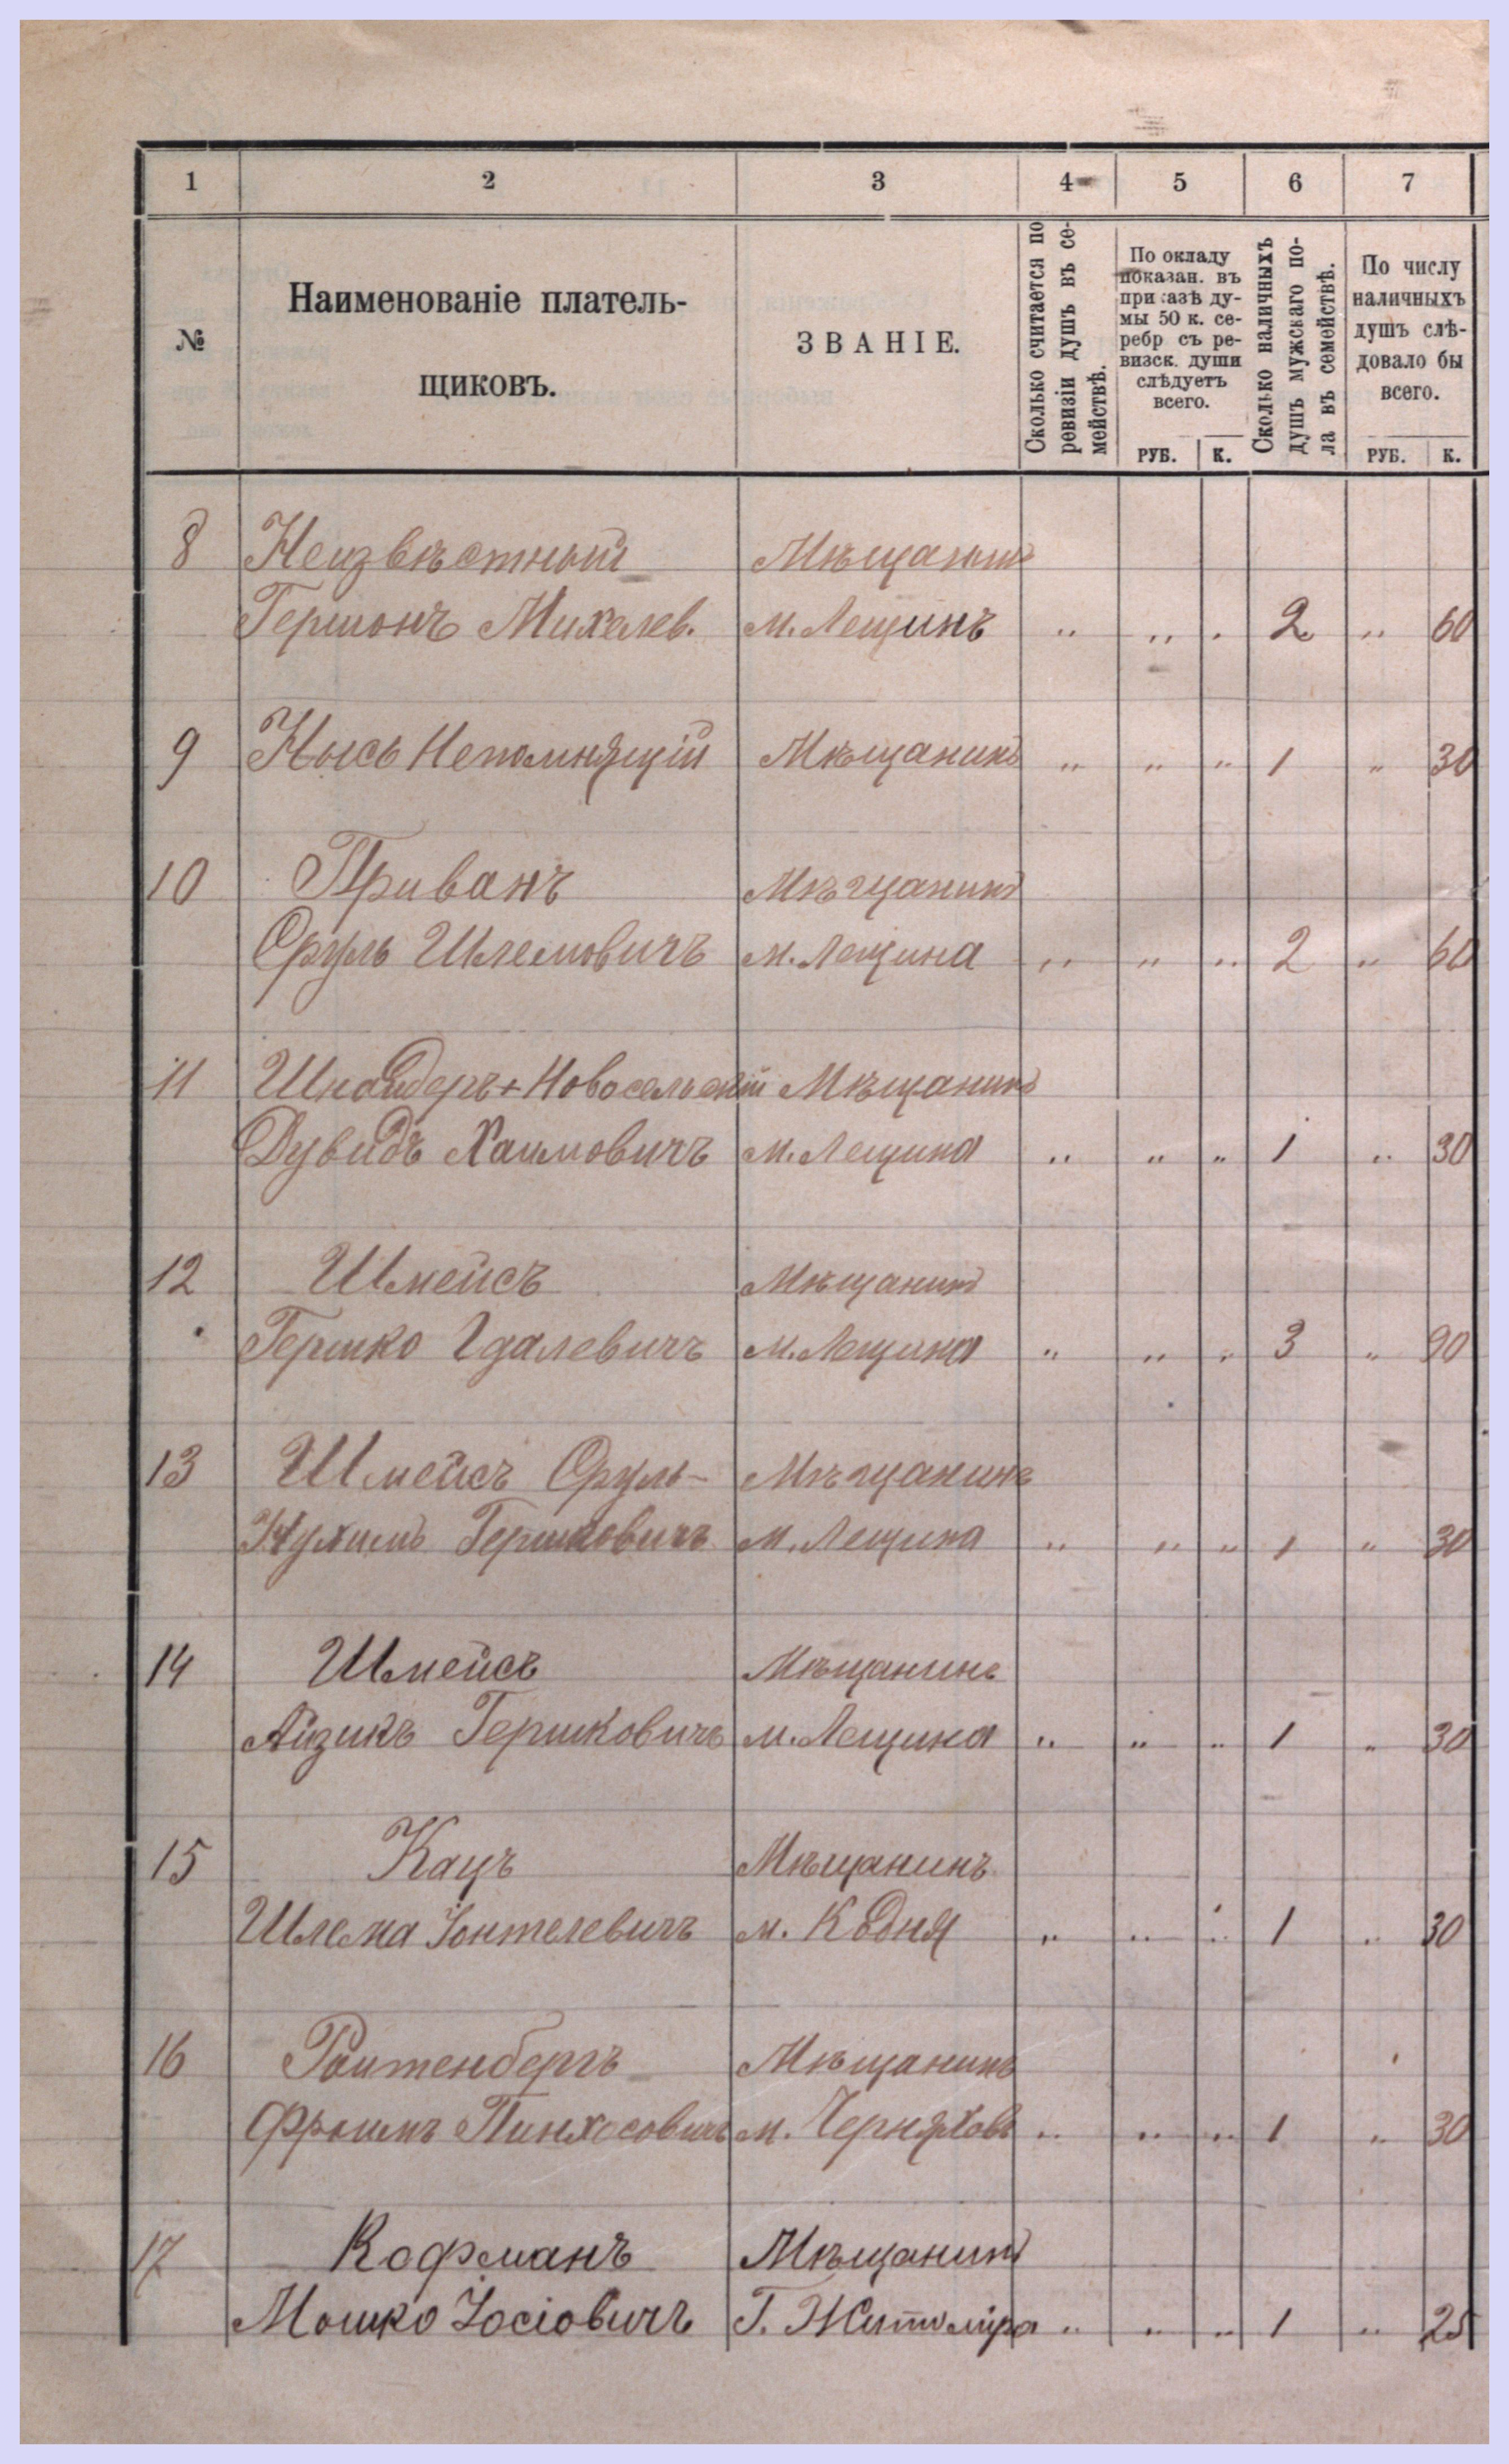 1 2 3 4 5 6 7
№
Наименованіе платель-
щиковъ.
ЗВАНІЕ.
Сколько считается по
ревизіи душъ въ се-
мействѣ.
По окладу
показан. въ
приказѣ ду-
мы 50 к. се-
ребр съ ре-
визск. души
слѣдуетъ
всего.
РУБ. К.
Сколько наличныхъ
душъ мужскаго по-
ла въ семействѣ.
По числу
наличныхъ
душъ слѣ-
довало бы
всего.
РУБ. К.
8 Неизвѣстный Мѣщанинъ
Гершонъ Михелев. м. Лещинъ „ „ „ 2 „ 60
9 Нысь Непомнящій Мѣщанинъ „ „ „ 1 „ 30
10 Приванъ Мѣщанинъ
Сруль Шлемовичъ м. Лещина „ „ „ 2 „ 60
11 Шнайдеръ + Новосельскій Мѣщанинъ
Дувидъ Хаимовичъ м. Лещина „ „ „ 1 „ 30
12 Шмейсъ Мѣщанинъ
Гершко Гдалевичъ м. Лещина „ „ „ 3 „ 90
13 Шмейсъ Сруль- Мѣщанинъ
Нухимъ Гершковичъ м. Лещина „ „ „ 1 „ 30
14 Шмейсъ Мѣщанинъ
Айзикъ Гершковичъ м. Лещина „ „ „ 1 „ 30
15 Кацъ Мѣщанинъ
Шлема Іонтелевичъ м. Кодня „ „ „ 1 „ 30
16 Ройтенбергъ Мѣщанинъ
Фроимъ Пинхосовичъ м. Черняховъ „ „ „ 1 „ 30
17 Кофманъ Мѣщанинъ
Мошко Іосіовичъ Г. Житоміра „ „ „ 1 „ 25